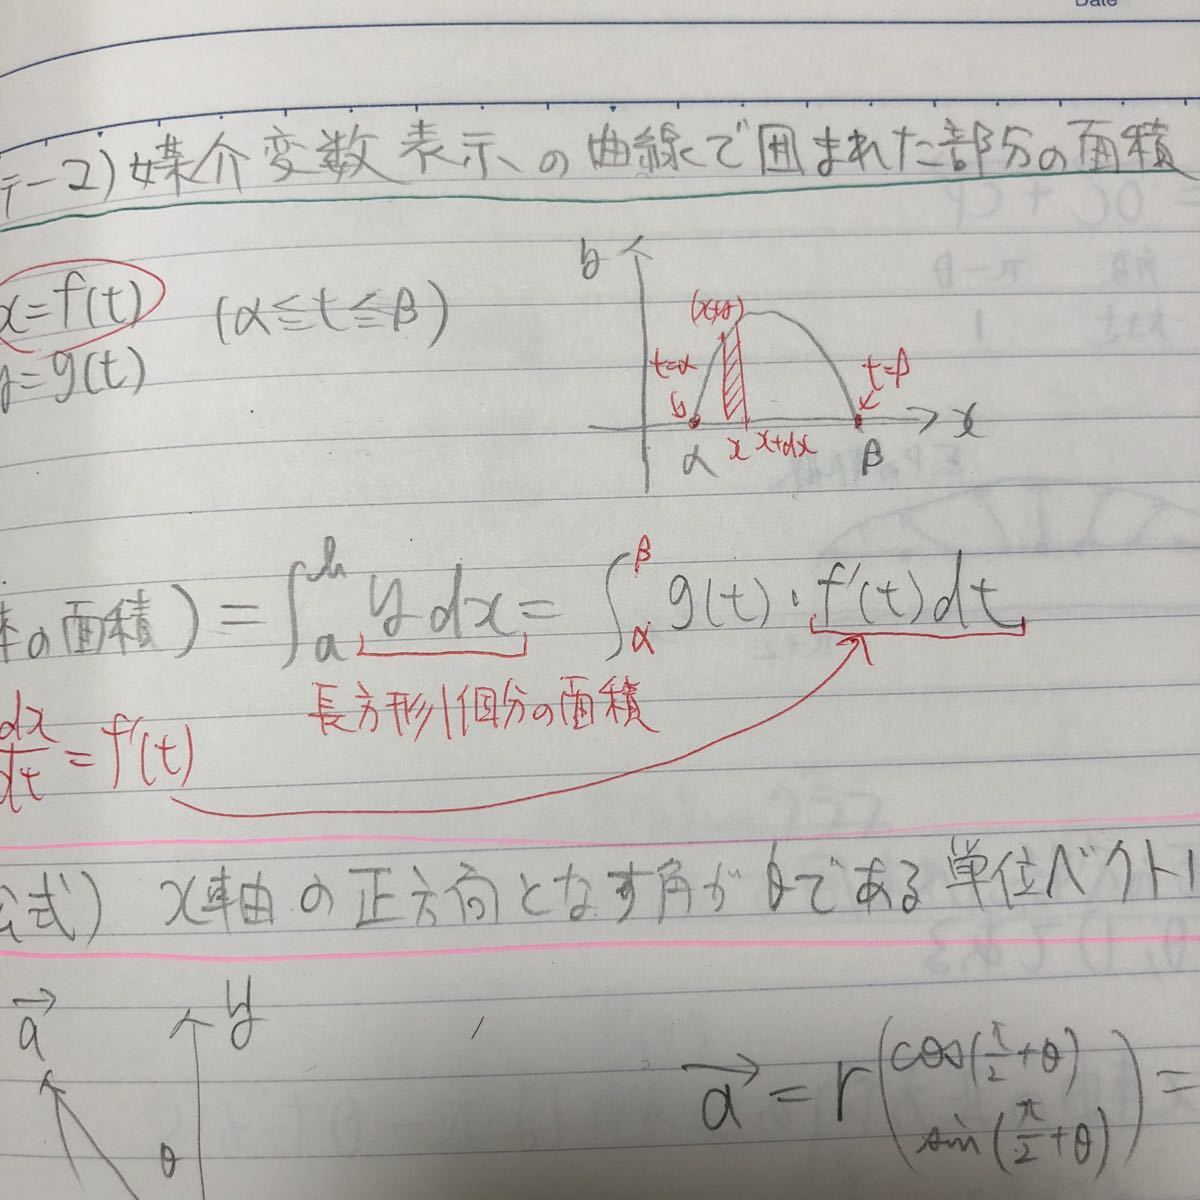 Date
テー2)媒介変数表示の曲線で囲まれた部分の面積
x=f(t) (α≦t≦β)
y=g(t)
y
t=α
t=β
x
x+dx
x
α
β
の面積)=∫_a^b y dx = ∫_α^β g(t)・f'(t)dt
長方形1個分の面積
dx/dt = f'(t)
公式) x軸の正方向となす角がθである単位ベクトル
a→
y
θ
a→ = r(cos(π/2+θ)
sin(π/2+θ)) =